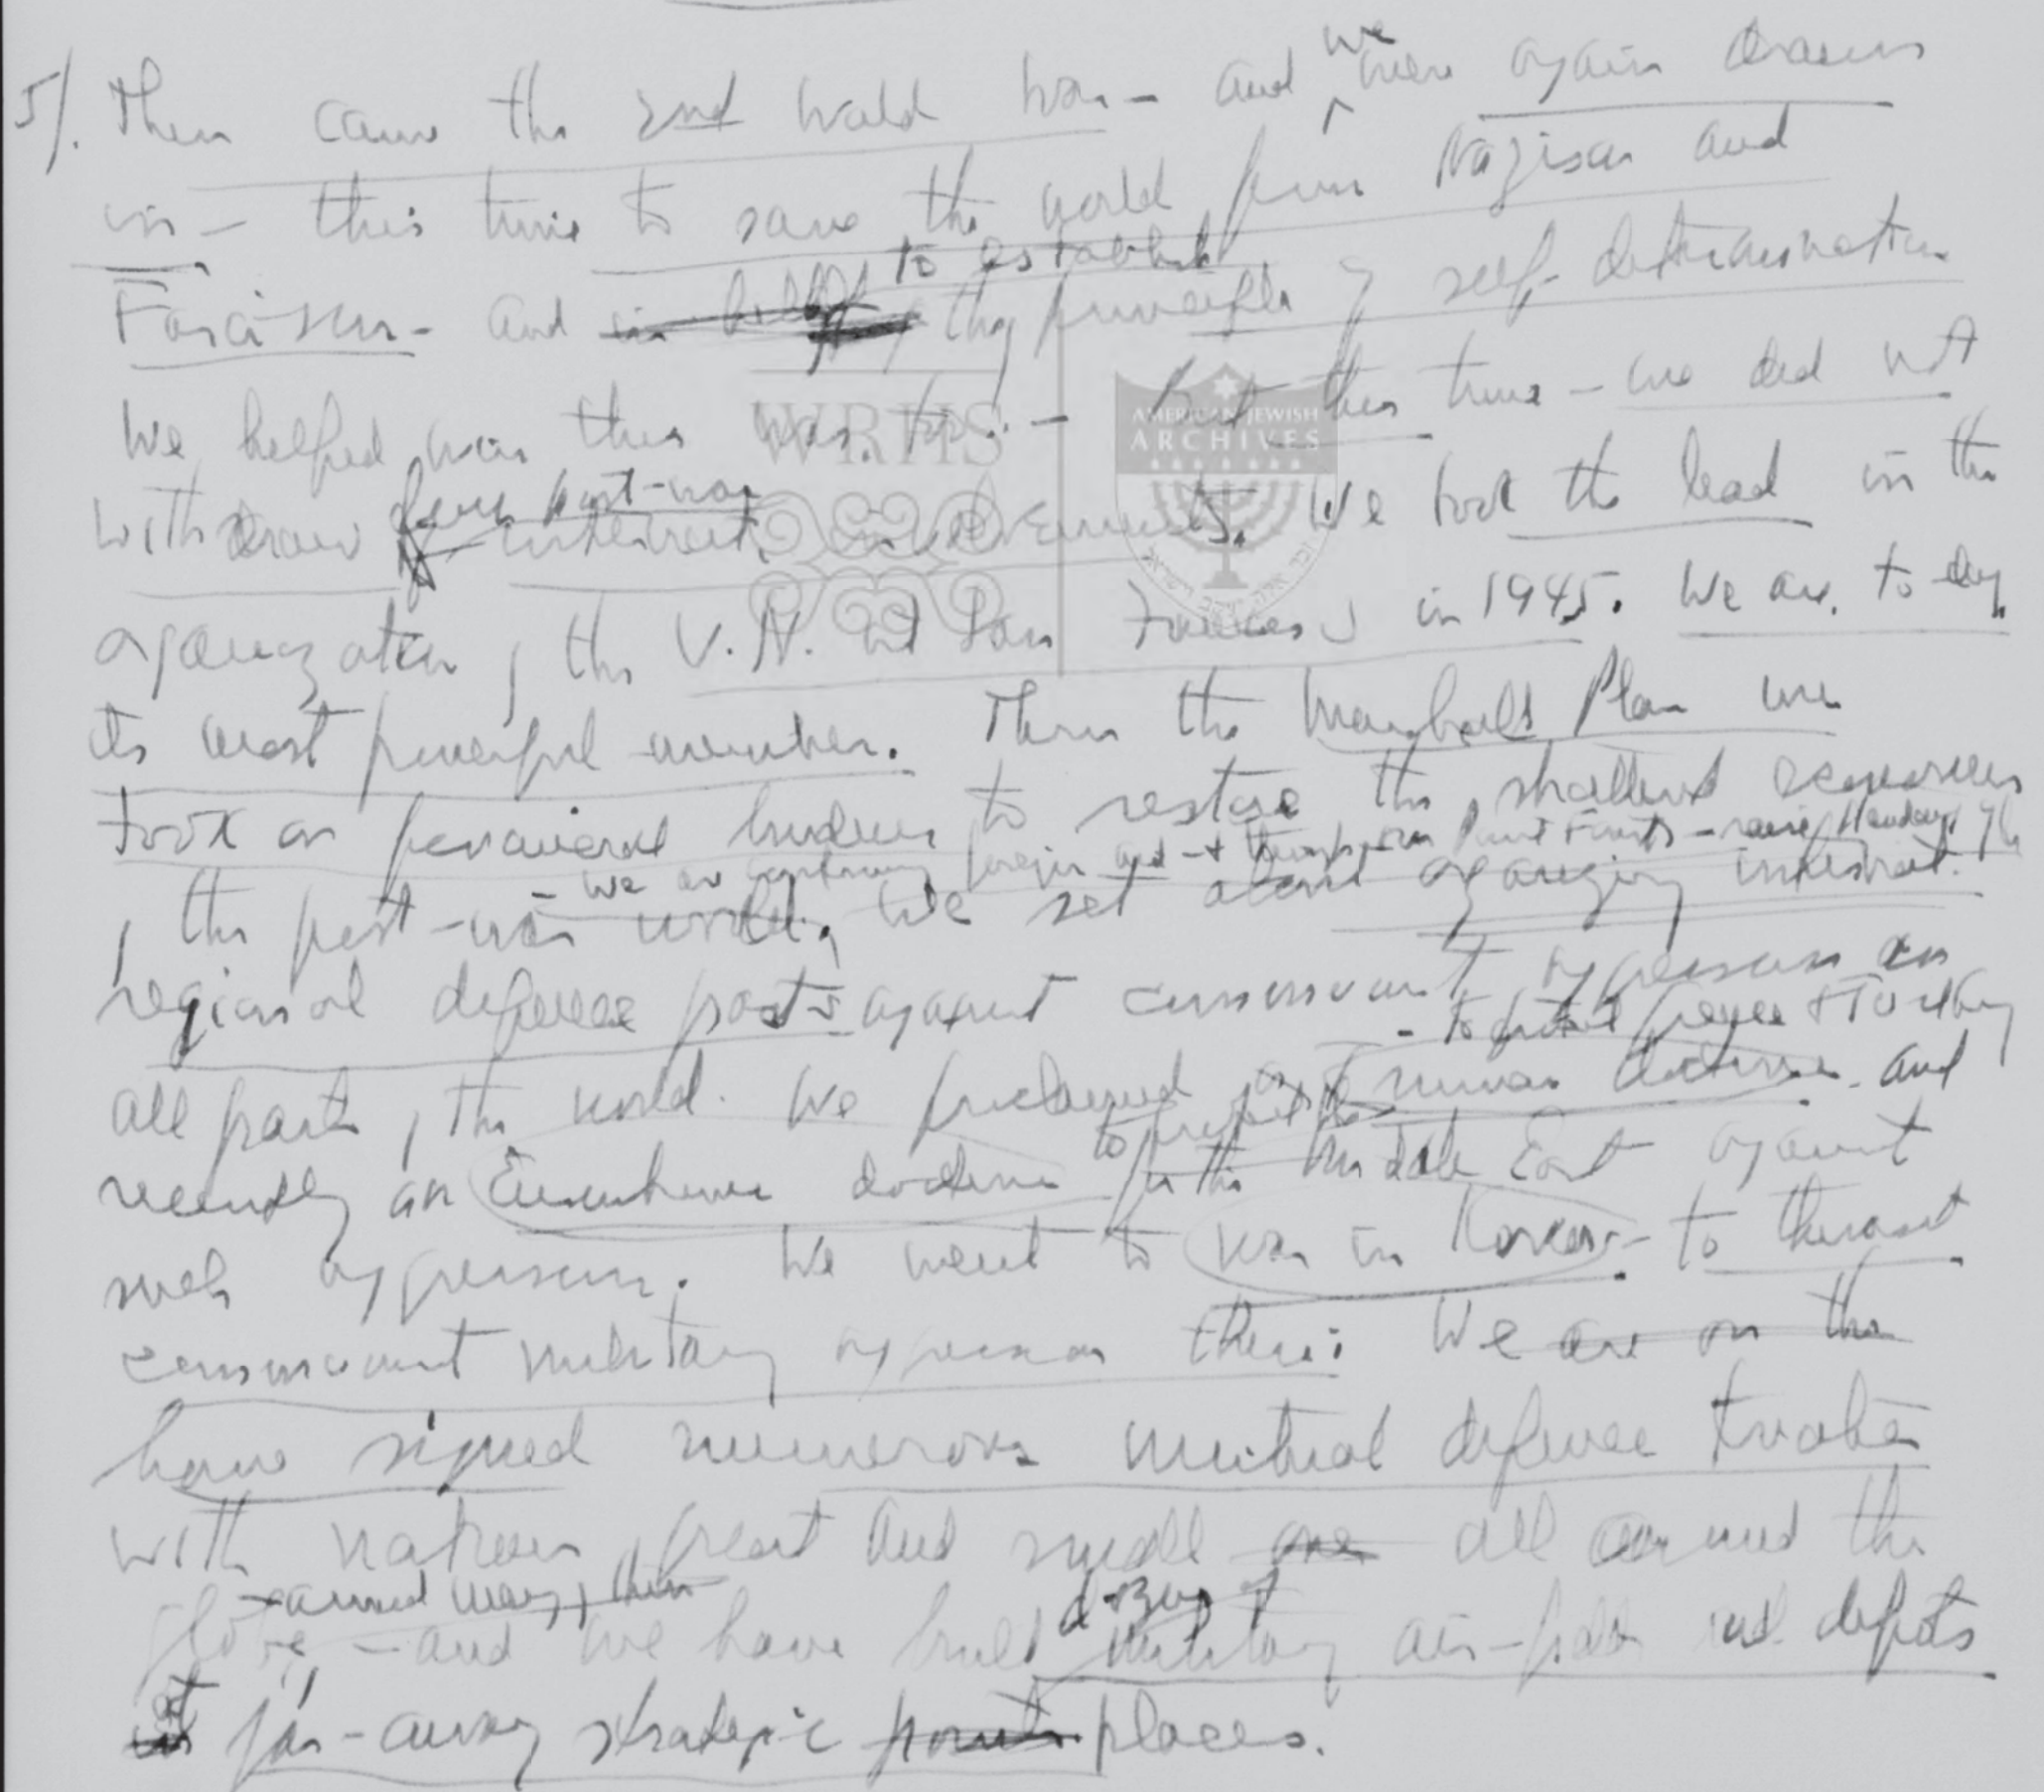 5/. Then came the 2nd World War - and we were again drawn
in - this time to save the world from Nazism and
Fascism - and to establish the principle of self-determination
We helped win this war too. - But this time - we did not
withdraw from post-war internat. involvements. We took the lead in the
organization of the U.N. at San Francisco in 1945. We are to-day
its most powerful member. Thru the Marshall Plan we
took on financial burdens to restore the shattered economies
- we are continuing foreign aid - + through our Point Four
of the post-war world. We set about organizing internat.
regional defense pacts against communist aggression in
- to protect Greece + Turkey
all parts of the world. We proclaimed a Truman doctrine - and
to protect the
recently an Eisenhower doctrine for the Middle East against
such aggression. We went to war in Korea - to thwart
communist military aggression there. We are on the
have signed numerous mutual defense treaties
with nations great and small all around the
- armed many of them
globe - and we have built dozens of military air-fields and depots
at far-away strategic points places.
WRHS
AMERICAN JEWISH
ARCHIVES